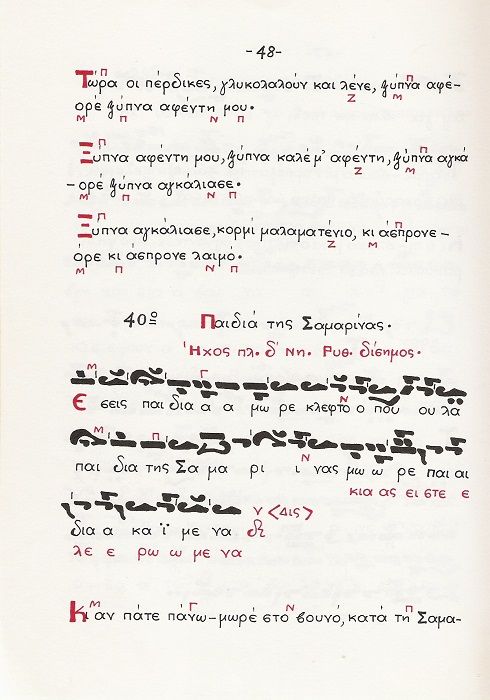 -48-
Τώρα οι πέρδικες, γλυκολαλούν και λένε, ξύπνα αφέ-
ορέ ξύπνα αφέντη μου.
Ξύπνα αφέντη μου, ξύπνα καλέ μ' αφέντη, ξύπνα αγκά
-ορέ ξύπνα αγκάλιασε.
Ξύπνα αγκάλιασε, κορμί μαλαματένιο, κι άσπρονε-
όρε κι άσπρονε λαιμό.
40º Παιδιά της Σαμαρίνας.
Ήχος πλ. δ΄ Νη. Ρυθ. δίσημος.
Ε σεις παι δια α α μω ρε κλεφτο ο που ου λα
παι δια της Σα μα ρι ι νας μω ω ρε παι αι
κια ας ει στε ε
δια α κα ϊ με να
λε ε ρω ω με να
Κι αν πάτε πάνω-μωρέ στο βουνό, κατά τη Σαμα-